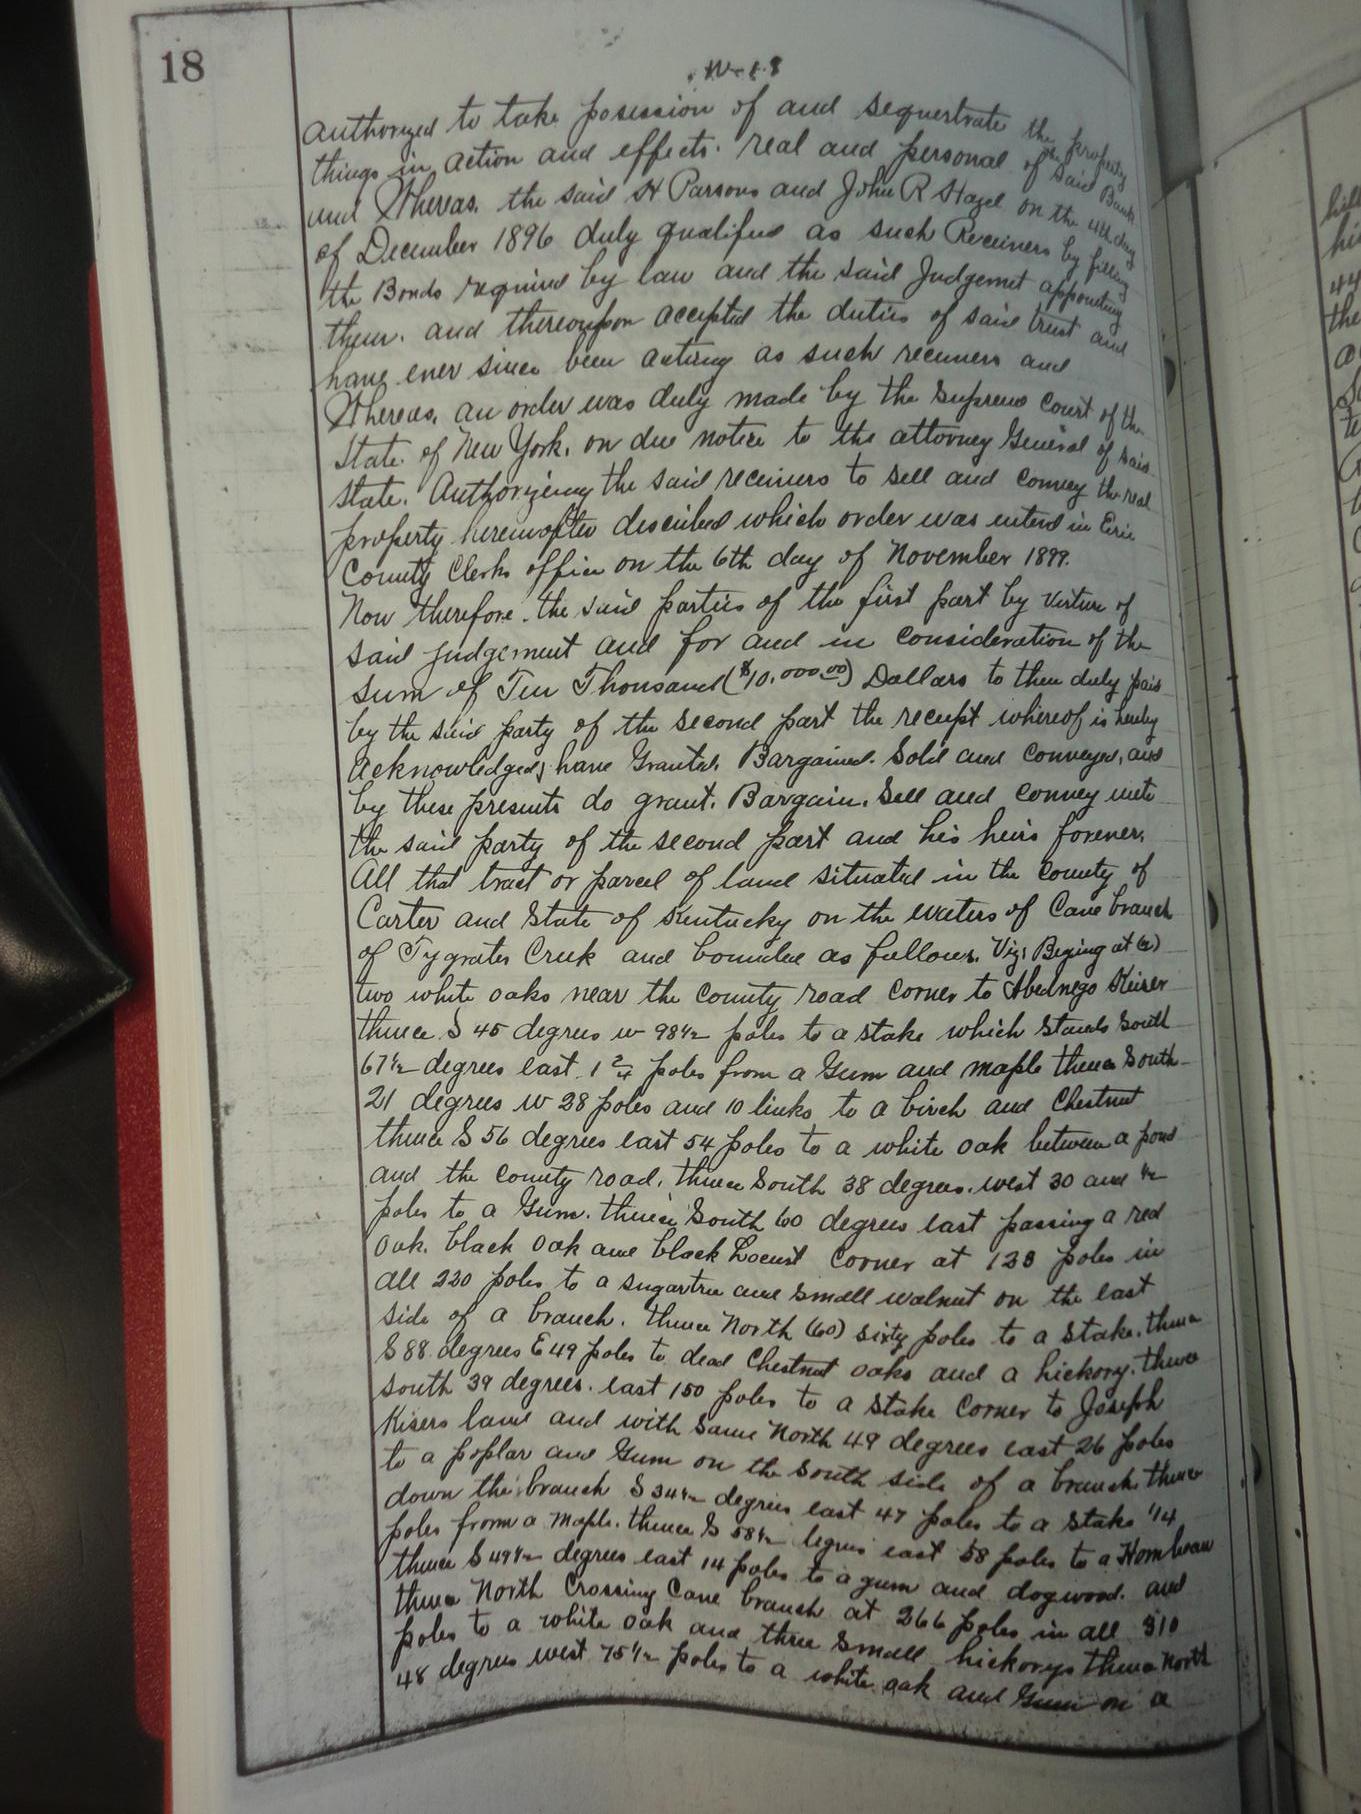 18
authorized to take posession of and sequestrate the property
things in action and effects. real and personal of the said Bank
and Whereas. the said H Parsons and John R Hazel on the 4th day
of December 1896 duly qualified as such Receivers by filling
the Bonds required by law and the said Judgemet appointing
them. and thereoupon accepted the duties of said trust and
have ever since been acting as such receivers and
Whereas, an order was duly made by the Supreme Court of the
State of New York. on due notice to the attorney General of said
State. Authorizing the said receivers to sell and convey the real
property hereinafter described which order was enterd in Erie
County Clerks office on the 6th day of November 1899.
Now therefore. the said parties of the first part by virtue of
said judgement and for and in consideration of the
sum of Ten Thousand ($10.000.00) Dollars to them duly paid
by the said party of the second part the receipt whereof is hereby
acknowledged, have Granted. Bargained. Sold and conveyed, and
by these presents do grant. Bargain. Sell and convey unto
the said party of the second part and his heirs forever.
All that tract or parcel of land situated in the county of
Carter and State of Kentucky on the waters of Cane branch
of Tygrates Creek and bounded as follows. Viz: Beging at (2)
two white oaks near the county road corner to Abednego Keiser
thence S 45 degrees w 98½ poles to a stake which stands South
67½ degrees east 1 2/4 poles from a Gum and maple thence South
21 degrees w 28 poles and 10 links to a birch and Chestnut
thence S 56 degrees east 54 poles to a white oak between a pond
and the county road. thence South 38 degrees. west 30 and ½
poles to a Gum. thence South 60 degrees east passing a red
oak. black oak and black Locust corner at 123 poles in
all 220 poles to a sugartree and small walnut on the east
side of a branch. thence North (60) sixty poles to a stake. thence
S 88 degrees E 49 poles to dead Chestnut oaks and a hickory. thence
south 39 degrees. east 150 poles to a stake corner to Joseph
Kisers land and with same North 49 degrees east 26 poles
to a poplar and Gum on the south side of a branch thence
down the branch S 34½ degrees east 47 poles to a stake 14
poles from a maple. thence S 58½ degrees east 58 poles to a Hornbeam
thence S 49½ degrees east 14 poles to a gum and dogwood. and
thence North Crossing Cane branch at 266 poles in all 310
poles to a white oak and three small hickorys thence North
48 degrees west 75½ poles to a white oak and Gum on a